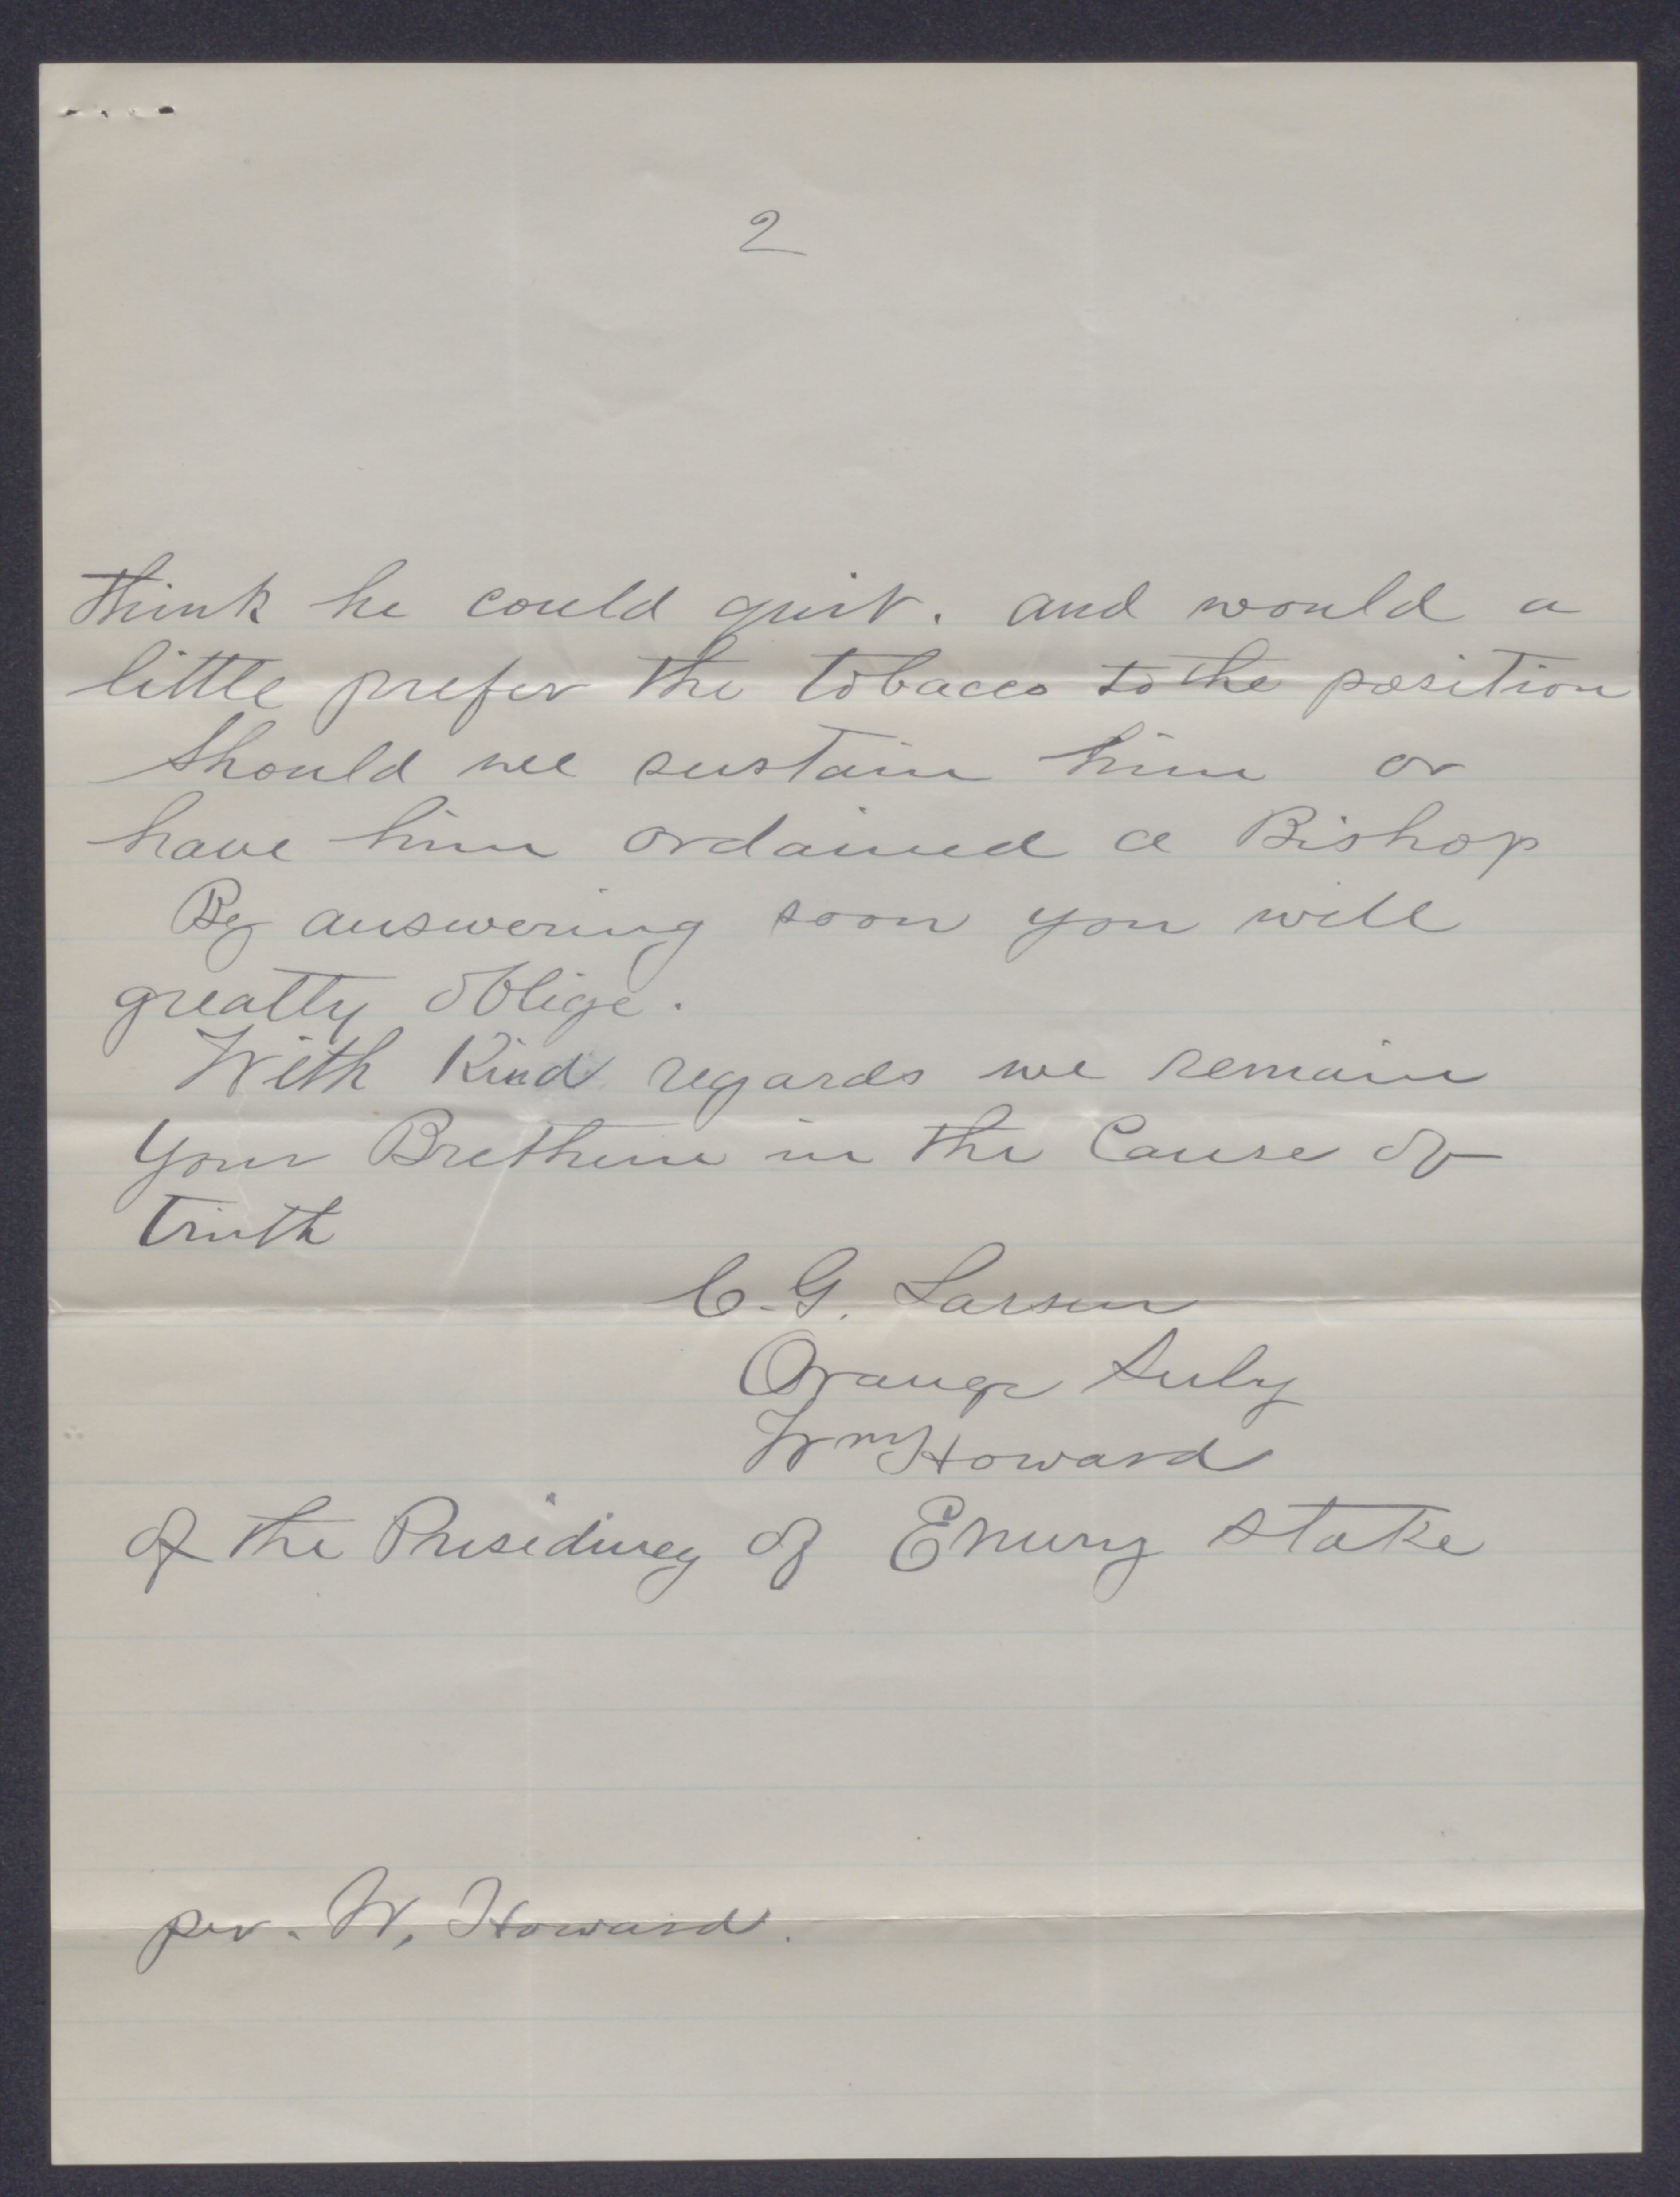 2
think he could quit. and would a
little prefer the tobacco to the position
Should we sustain him or
have him ordained a Bishop
By answering soon you will
greatly oblige.
With Kind regards we remain
Your Brethren in the Cause of
truth
C. G. Larsen
Orange Seely
Wm Howard
of the Presidency of Emery stake
per. W. Howard.